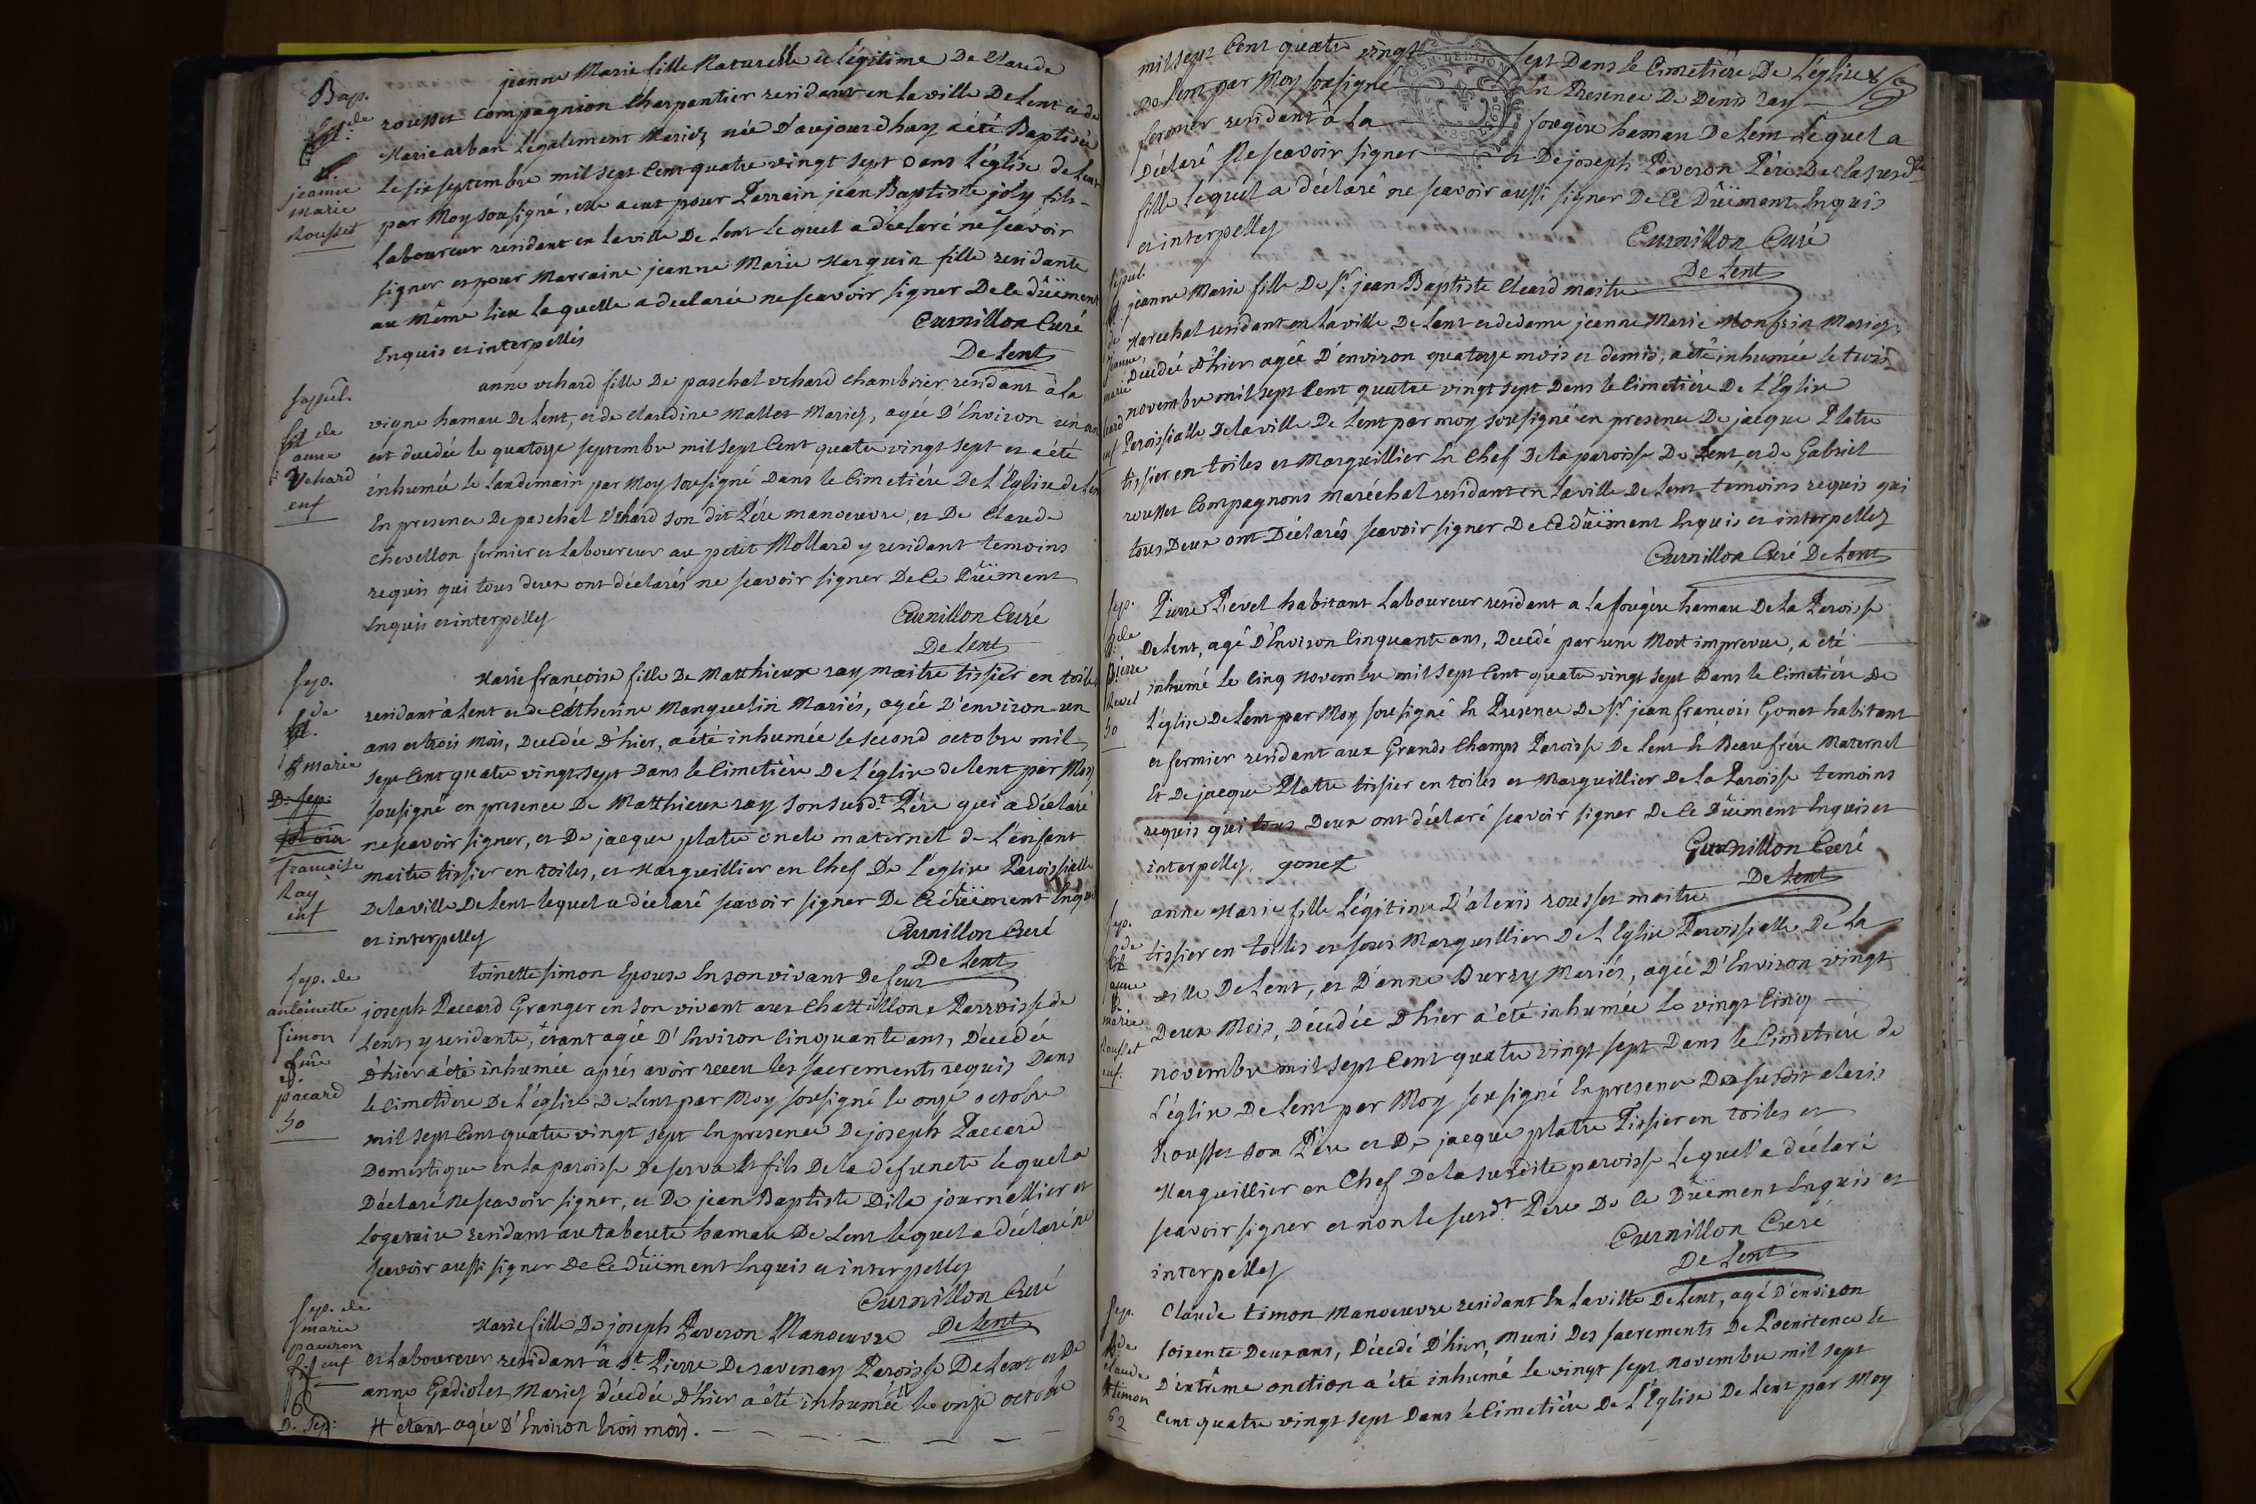 Bap.
de
jeanne
marie
Rousset
jeanne Marie fille Naturelle et légitime De Claude
rousset compagnion Charpentier residant en la ville De Lent et de
Marie arban Légalement Mariez née D'aujourdhuy a été Baptisée
Le six septembre mil sept Cent quatre vingt sept Dans L'église de Lent
par Moy sousigné, elle a eut pour Parrain jean Baptiste joly fils
Laboureur residant en la ville De Lent Lequel a déclaré ne scavoir
signer et pour Marraine jeanne Marie Marguin fille residante
au Même lieu laquelle a declarée ne scavoir signer De Ce dûëment
Enquis et interpellés
Curnillon Curé
De Lent
seppul.
de
anne
Vchard
enf
anne vchard fille De paschal vchard chambrier residant à la
vigne hamau De Lent, et de claudine Mallet Mariez, agée D'Environ un an
est decedée le quatorze septembre mil sept Cent quatre vingt sept et a été
inhumée Le Landemain par Moy sousigné Dans le Cimetiére De L'Eglise de Lent
En presence De paschal Vchard son dit Pére manoeuvre, et De Claude
Chevellon fermier et Laboureur au petit Mollard y residant temoins
requis qui tous deux ont déclarés ne scavoir signer De Ce Dûëment
Enquis et interpelley
Curnillon Curé
De Lent
sep.
de
marie
D. sep.
françoise
Ray
enf
Marie françoise fille De Matthieux ray maitre tissier en toiles
residant à Lent et de Catherine Manguelin Mariés, agée D'environ un
ans et trois Mois, Decedée D'hier, a été inhumée le second octobre mil
sept Cent quatre vingt sept Dans le Cimetiére De L'église de Lent par Moy
sousigné en presence De Matthieux ray son susd.t Pére qui a déclaré
ne scavoir signer, et De jacque platre oncle maternel de L'enfant
maitre tissier en toiles, et Marguillier en Chef De L'église Paroissialle
De la ville De Lent lequel a déclaré scavoir signer De Ce dûëment Enquis
et interpelley
Curnillon Curé
De Lent
sep. de
antoinette
simon
fme
pacard
50
toinette simon Epouse En son vivant De feux
joseph Paccard Granger en son vivant aux Chattillone Parroisse de
Lent, y residante, étant agée D'Environ Cinquante ans, Décedée
D'hier a été inhumée aprés avoir receu les sacrements requis Dans
le Cimetiére De L'église De Lent par Moy sousigné le onze octobre
mil sept Cent quatre vingt sept En presence De joseph Paccard
Domestique en la paroisse De serva Et fils De la defuncte lequel a
Déclaré Ne scavoir signer, et De jean Baptiste Dila journellier et
Logataire residant au taberete hamau De Lent lequel a déclaré ne
scavoir aussi signer De Ce dûëment Enquis et interpelley
Curnillon Curé
De Lent
sep. de
marie
paveron
enf
Marie fille De joseph Paveron Manoeuvre
et Laboureur residant à St. Pierre De ravenay Paroisse De Lent et De
anne Gadiolet Mariez décedée D'hier a été inhumée le onze octobre
D. sep:
# étant agée D'Environ trois mois.
mil sept Cent quatre vingt sept Dans le Cimetiére De L'église
De Lent par Moy sousigné En Presence De Denis ray
fermier residant à La fougére hamau De Lent Lequel a
Déclaré Ne scavoir signer et De joseph Paveron Pére De la susd.te
fille lequel a déclaré ne scavoir aussi signer De Ce Dûëment Enquis
et interpelley
Curnillon Curé
De Lent
sepul.
de
jeanne
marie
enf
jeanne Marie fille De Sr. jean Baptiste Cleard maitre
Marechal residant en la ville De Lent et de dame jeanne Marie Monfrin Mariez
Decedée D'hier agée D'environ quatorze mois et demis, a été inhumée le trois
novembre mil sept Cent quatre vingt sept Dans le Cimetiére De L'Eglise
Paroissialle De la ville De Lent par moy sousigné en presence De jacque Platre
tissier en toiles et Marguillier En Chef De la paroisse De Lent et de Gabriel
rousset Compagnons maréchal residant en la ville De Lent temoins requis qui
tous Deux ont Déclarés scavoir signer De Ce dûëment Enquis et interpelley
Curnillon Curé De Lent
sep.
de
Pierre
Revel
50
Pierre Revel habitant Laboureur residant a la fougére hamau De La Paroisse
De Lent, agé D'Environ Cinquante ans, Decedé par une Mort imprevue, a été
inhumé Le Cinq Novembre mil sept Cent quatre vingt sept Dans le Cimetiére De
L'église De Lent par Moy sousigné En Presence De Sr. jean françois Gonet habitant
et fermier residant aux Grands Champs Paroisse De Lent Et Beau frére Maternel
Et De jacque Platre tissier en toiles et Marguillier De La Paroisse temoins
requis qui tous Deux ont déclaré scavoir signer De Ce Dûëment Enquis et
interpelley. gonet
Curnillon Curé
De Lent
sep.
de
anne
marie
Rousset
enf.
anne Marie fille Légitime D'alexis rousset maitre
tissier en toiles et sous Marguillier De L'Eglise Paroissialle De La
ville De Lent, et D'anne Burry Mariés, agée D'Environ vingt
Deux Mois, Décedée D'hier a été inhumée Le vingt Cinq
novembre mil sept Cent quatre vingt sept Dans le Cimetiére de
L'église De Lent par Moy sousigné En presence Du susdit alexis
Rousset son Pére et De jacque platre Tissier en toiles et
Marguillier en Chef De la susdite paroisse Lequel a déclaré
scavoir signer et non le susd.t Pére De Ce Dûëment Enquis et
interpelley
Curnillon Curé
De Lent
sep.
de
claude
timon
62
Claude timon Manoeuvre residant En la ville De Lent, agé d'environ
soixente Deux ans, Décedé D'hier, Muni Des sacrements De Poenitence Et
D'extrême onction a été inhumé le vingt sept novembre mil sept
Cent quatre vingt sept Dans le Cimetiére De L'Eglise De Lent par Moy